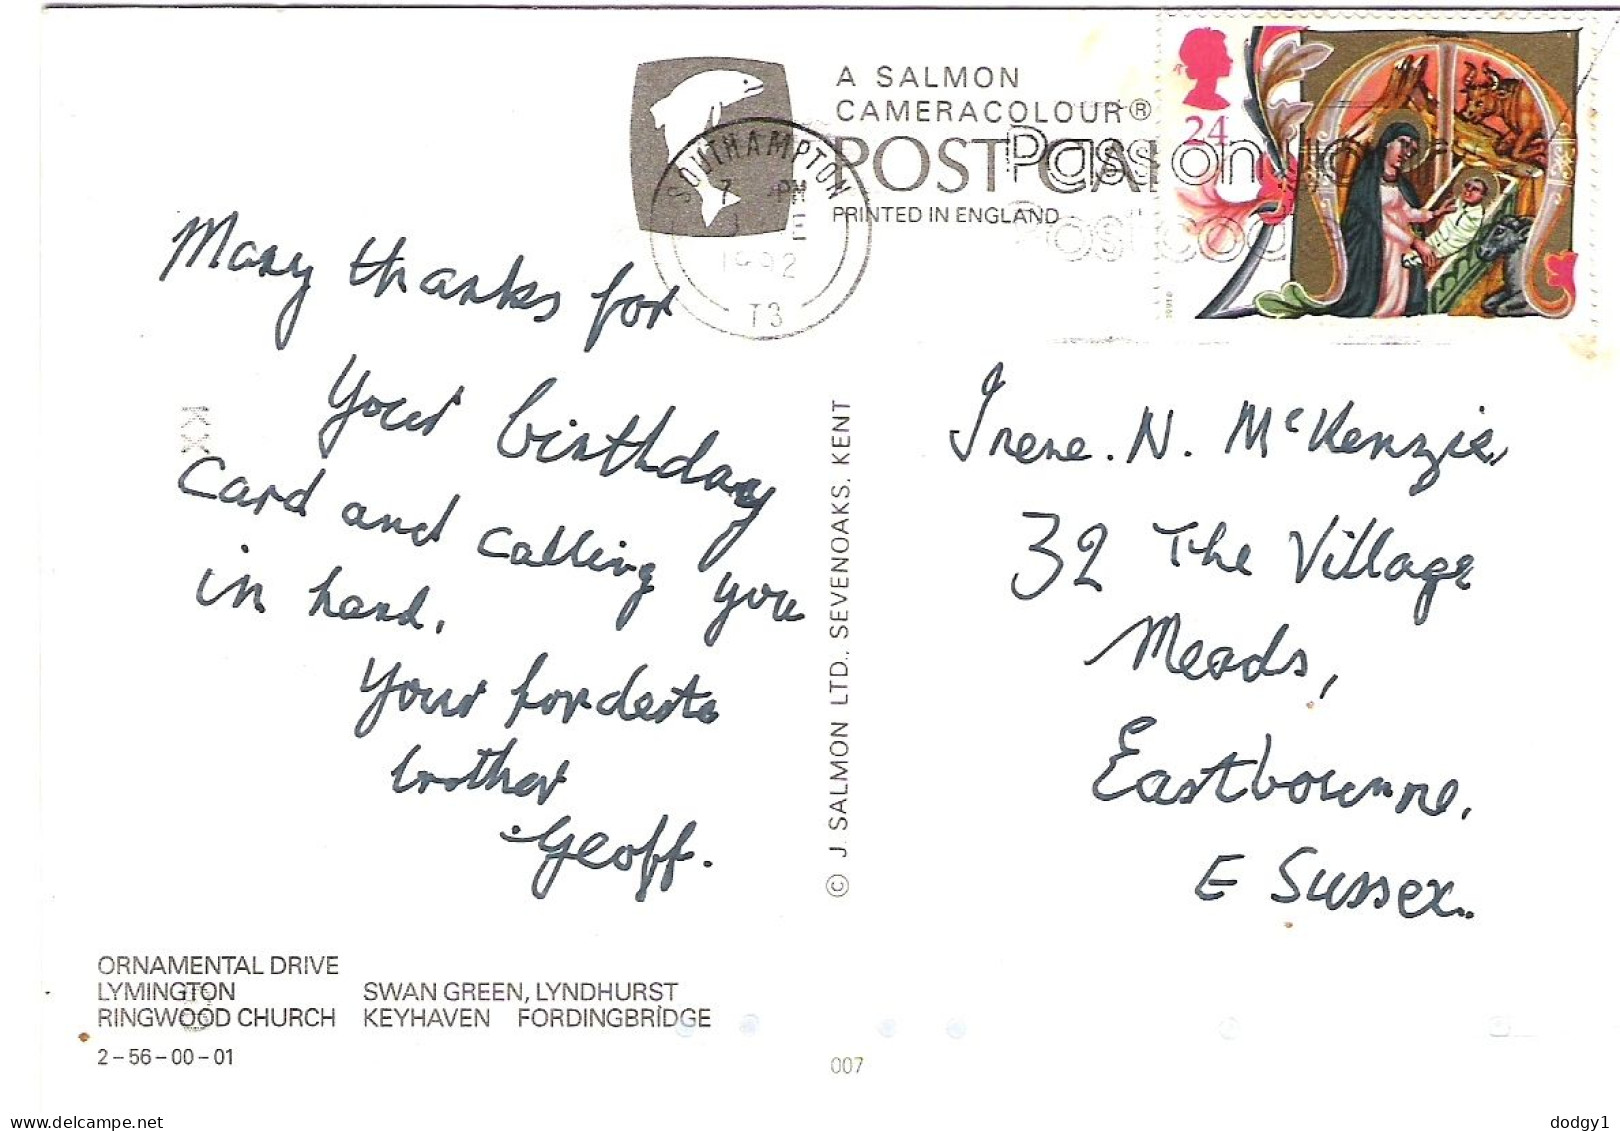 A SALMON
CAMERACOLOUR®
POST CARD
PRINTED IN ENGLAND
SOUTHAMPTON
7 PM
1992
T3
Pass on
Postcode
24
Many thanks for
your birthday
Card and calling you
in hand.
Your fondests
brother
Geoff.
© J. SALMON LTD., SEVENOAKS, KENT
Irene. N. McKenzie,
32 The Village
Meads,
Eastbourne,
E Sussex.
ORNAMENTAL DRIVE
LYMINGTON SWAN GREEN, LYNDHURST
RINGWOOD CHURCH KEYHAVEN FORDINGBRIDGE
2-56-00-01
007
dodgy1